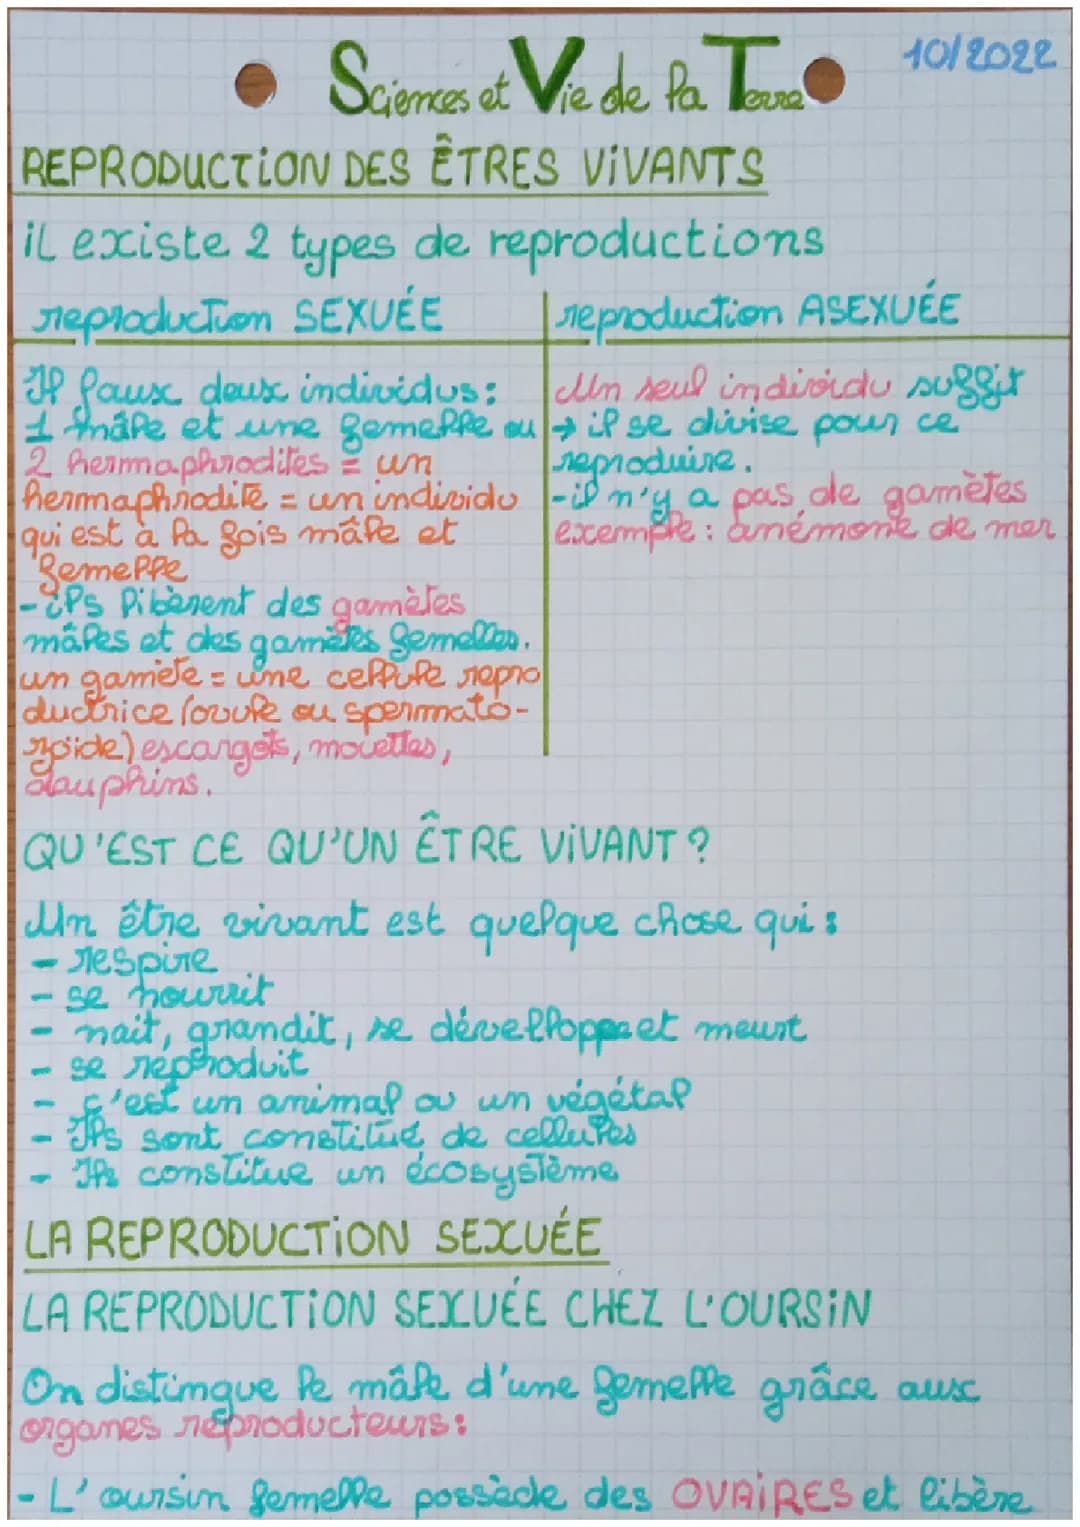 Sciences et Vie de la Terre
10/2022
REPRODUCTION DES ÊTRES VIVANTS
il existe 2 types de reproductions
reproduction SEXUÉE
Il faux deux individus :
1 mâle et une femelle ou
2 hermaphrodites = un
hermaphrodite = un individu
qui est à la fois mâle et
femelle
- ils libèrent des gamètes
mâles et des gamètes femelles.
un gamète = une cellule repro
ductrice (ovule ou spermato-
zoïde) escargots, mouettes,
dauphins.
reproduction ASEXUÉE
Un seul individu suffit
→ il se divise pour ce
reproduire.
- il n'y a pas de gamètes
exemple : anémone de mer
QU'EST CE QU'UN ÊTRE VIVANT ?
Un être vivant est quelque chose qui :
- respire
- se nourrit
- nait, grandit, se dévelloppe et meurt
- se reproduit
- c'est un animal ou un végétal
- Ils sont constitué de cellules
- Ils constitue un écosystème
LA REPRODUCTION SEXUÉE
LA REPRODUCTION SEXUÉE CHEZ L'OURSIN
On distingue le mâle d'une femelle grâce aux
organes reproducteurs :
- L'oursin femelle possède des OVAIRES et libère